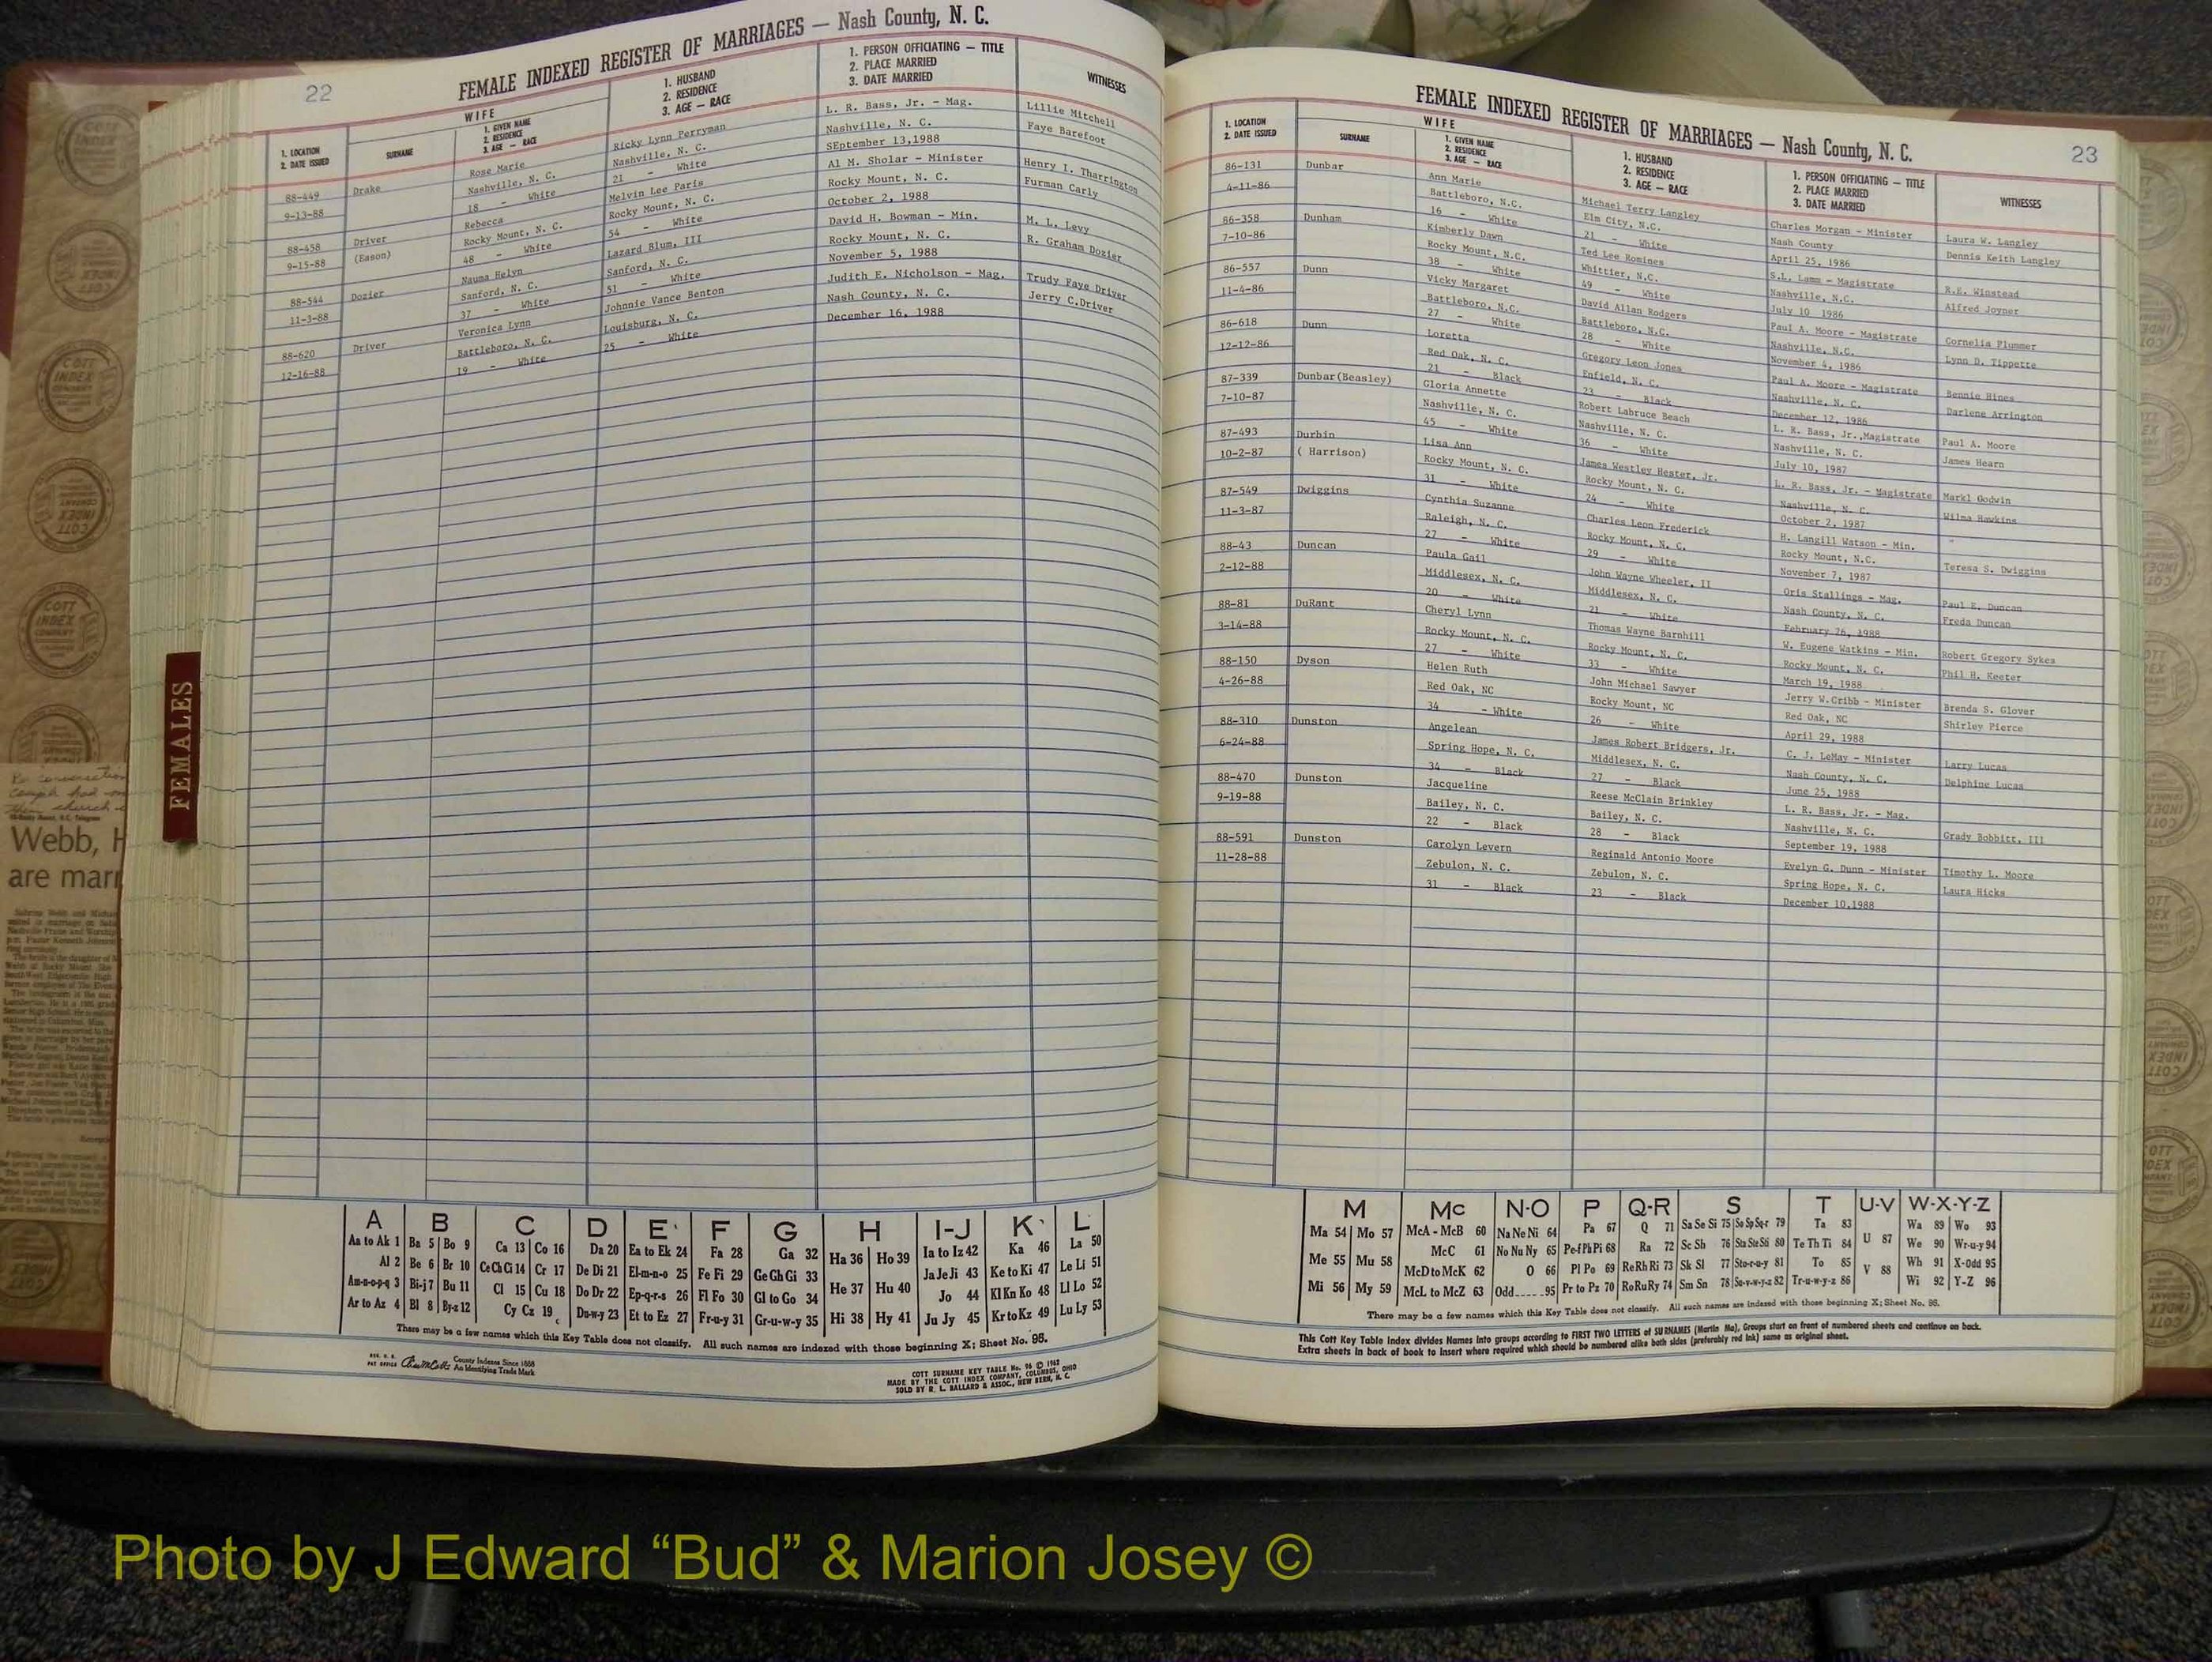 22
FEMALE INDEXED REGISTER OF MARRIAGES — Nash County, N. C.
1. LOCATION
2. DATE ISSUED
WIFE
SURNAME
1. GIVEN NAME
2. RESIDENCE
3. AGE — RACE
1. HUSBAND
2. RESIDENCE
3. AGE — RACE
1. PERSON OFFICIATING — TITLE
2. PLACE MARRIED
3. DATE MARRIED
WITNESSES
88-449 Drake Rose Marie Ricky Lynn Perryman L. R. Bass, Jr. - Mag. Lillie Mitchell
9-13-88 Nashville, N. C. Nashville, N. C. Nashville, N. C. Faye Barefoot
18 - White 21 - White SEptember 13,1988
88-458 Driver Rebecca Melvin Lee Paris Al M. Sholar - Minister Henry I. Tharrington
9-15-88 (Eason) Rocky Mount, N. C. Rocky Mount, N. C. Rocky Mount, N. C. Furman Carly
48 - White 54 - White October 2, 1988
88-544 Dozier Nauma Helyn Lazard Blum, III David H. Bowman - Min. M. L. Levy
11-3-88 Sanford, N. C. Sanford, N. C. Rocky Mount, N. C. R. Graham Dozier
37 - White 51 - White November 5, 1988
88-620 Driver Veronica Lynn Johnnie Vance Benton Judith E. Nicholson - Mag. Trudy Faye Driver
12-16-88 Battleboro, N. C. Louisburg, N. C. Nash County, N. C. Jerry C.Driver
19 - White 25 - White December 16, 1988
FEMALES
Webb, H
are marr
A B C D E F G H I-J K L
Aa to Ak 1 Ba 5 Bo 9 Ca 13 Co 16 Da 20 Ea to Ek 24 Fa 28 Ga 32 Ha 36 Ho 39 Ia to Iz 42 Ka 46 La 50
Al 2 Be 6 Br 10 Ce Ch Ci 14 Cr 17 De Di 21 El-m-n-o 25 Fe Fi 29 Ge Gh Gi 33 He 37 Hu 40 Ja Je Ji 43 Ke to Ki 47 Le Li 51
Am-n-o-p-q 3 Bi-j 7 Bu 11 Cl 15 Cu 18 Do Dr 22 Ep-q-r-s 26 Fl Fo 30 Gl to Go 34 Jo 44 Kl Kn Ko 48 Ll Lo 52
Ar to Az 4 Bl 8 By-z 12 Cy Cz 19 Du-w-y 23 Et to Ez 27 Fr-u-y 31 Gr-u-w-y 35 Hi 38 Hy 41 Ju Jy 45 Kr to Kz 49 Lu Ly 53
There may be a few names which this Key Table does not classify. All such names are indexed with those beginning X; Sheet No. 95.
County Indexes Since 1888
An Identifying Trade Mark
COTT SURNAME KEY TABLE No. 96 © 1962
MADE BY THE COTT INDEX COMPANY, COLUMBUS, OHIO
SOLD BY R. L. BALLARD & ASSOC., NEW BERN, N. C.
FEMALE INDEXED REGISTER OF MARRIAGES — Nash County, N. C.
23
1. LOCATION
2. DATE ISSUED
WIFE
SURNAME
1. GIVEN NAME
2. RESIDENCE
3. AGE — RACE
1. HUSBAND
2. RESIDENCE
3. AGE — RACE
1. PERSON OFFICIATING — TITLE
2. PLACE MARRIED
3. DATE MARRIED
WITNESSES
86-131 Dunbar Ann Marie Michael Terry Langley Charles Morgan - Minister Laura W. Langley
4-11-86 Battleboro, N.C. Elm City, N.C. Nash County Dennis Keith Langley
16 - White 21 - White April 25, 1986
86-358 Dunham Kimberly Dawn Ted Lee Romines S.L. Lamm - Magistrate R.E. Winstead
7-10-86 Rocky Mount, N.C. Whittier, N.C. Nashville, N.C. Alfred Joyner
38 - White 49 - White July 10 1986
86-557 Dunn Vicky Margaret David Allan Rodgers Paul A. Moore - Magistrate Cornelia Plummer
11-4-86 Battleboro, N.C. Battleboro, N.C. Nashville, N.C. Lynn D. Tippette
27 - White 28 - White November 4, 1986
86-618 Dunn Loretta Gregory Leon Jones Paul A. Moore - Magistrate Bennie Hines
12-12-86 Red Oak, N. C. Enfield, N. C. Nashville, N. C. Darlene Arrington
21 - Black 23 - Black December 12, 1986
87-339 Dunbar(Beasley) Gloria Annette Robert Labruce Beach L. R. Bass, Jr.,Magistrate Paul A. Moore
7-10-87 Nashville, N. C. Nashville, N. C. Nashville, N. C. James Hearn
45 - White 36 - White July 10, 1987
87-493 Durbin Lisa Ann James Westley Hester, Jr. L. R. Bass, Jr. - Magistrate Markl Godwin
10-2-87 ( Harrison) Rocky Mount, N. C. Rocky Mount, N. C. Nashville, N. C. Wilma Hawkins
31 - White 24 - White October 2, 1987
87-549 Dwiggins Cynthia Suzanne Charles Leon Frederick H. Langill Watson - Min.
11-3-87 Raleigh, N. C. Rocky Mount, N. C. Rocky Mount, N.C. Teresa S. Dwiggins
27 - White 29 - White November 7, 1987
88-43 Duncan Paula Gail John Wayne Wheeler, II Oris Stallings - Mag. Paul E. Duncan
2-12-88 Middlesex, N. C. Middlesex, N. C. Nash County, N. C. Freda Duncan
20 - White 21 - White February 26, 1988
88-81 DuRant Cheryl Lynn Thomas Wayne Barnhill W. Eugene Watkins - Min. Robert Gregory Sykes
3-14-88 Rocky Mount, N. C. Rocky Mount, N. C. Rocky Mount, N. C. Phil H. Keeter
27 - White 33 - White March 19, 1988
88-150 Dyson Helen Ruth John Michael Sawyer Jerry W.Cribb - Minister Brenda S. Glover
4-26-88 Red Oak, NC Rocky Mount, NC Red Oak, NC Shirley Pierce
34 - White 26 - White April 29, 1988
88-310 Dunston Angelean James Robert Bridgers, Jr. C. J. LeMay - Minister Larry Lucas
6-24-88 Spring Hope, N. C. Middlesex, N. C. Nash County, N. C. Delphine Lucas
34 - Black 27 - Black June 25, 1988
88-470 Dunston Jacqueline Reese McClain Brinkley L. R. Bass, Jr. - Mag.
9-19-88 Bailey, N. C. Bailey, N. C. Nashville, N. C. Grady Bobbitt, III
22 - Black 28 - Black September 19, 1988
88-591 Dunston Carolyn Levern Reginald Antonio Moore Evelyn G. Dunn - Minister Timothy L. Moore
11-28-88 Zebulon, N. C. Zebulon, N. C. Spring Hope, N. C. Laura Hicks
31 - Black 23 - Black December 10,1988
M Mc N-O P Q-R S T U-V W-X-Y-Z
Ma 54 Mo 57 McA - McB 60 Na Ne Ni 64 Pa 67 Q 71 Sa Se Si 75 So Sp Sq-r 79 Ta 83 U 87 Wa 89 Wo 93
Me 55 Mu 58 McC 61 No Nu Ny 65 Pe-f Ph Pi 68 Ra 72 Sc Sh 76 Sta Ste Sti 80 Te Th Ti 84 We 90 Wr-u-y 94
McD to McK 62 O 66 Pl Po 69 Re Rh Ri 73 Sk Sl 77 Sto-r-u-y 81 To 85 V 88 Wh 91 X-Odd 95
Mi 56 My 59 McL to McZ 63 Odd 95 Pr to Pz 70 Ro Ru Ry 74 Sm Sn 78 Su-v-w-y-z 82 Tr-u-w-y-z 86 Wi 92 Y-Z 96
There may be a few names which this Key Table does not classify. All such names are indexed with those beginning X; Sheet No. 95.
This Cott Key Table Index divides Names into groups according to FIRST TWO LETTERS of SURNAMES (Martin Ma), Groups start on front of numbered sheets and continue on back.
Extra sheets in back of book to insert where required which should be numbered alike both sides (preferably red ink) same as original sheet.
Photo by J Edward “Bud” & Marion Josey ©